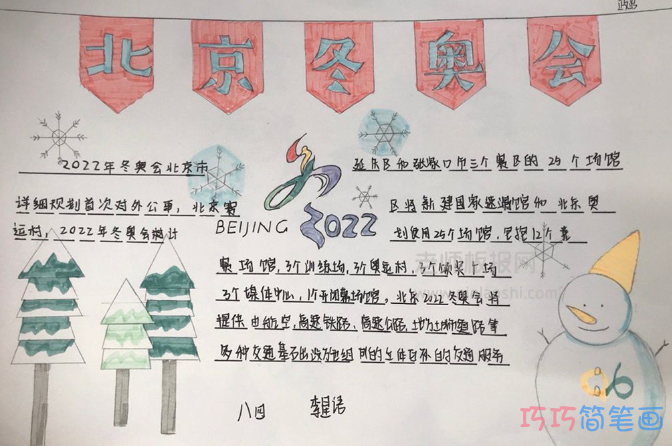 北京冬奥会
2022年冬奥会北京市
详细规划首次对外公布,北京赛
运村,2022年冬奥会计
延庆区和张家口市三个赛区的25个场馆
区将新建国家速滑馆和北京奥
划使用25个场馆,包括12个竞
BEIJING 2022
赛场馆,3个训练场,3个奥运村,3个颁奖广场
3个媒体中心,1个开闭幕场馆。北京2022冬奥会将
提供由航空,高速铁路,高速公路,地方
多种交通基础设施组成的交通服务
八四 李
老师板报网
巧巧简笔画